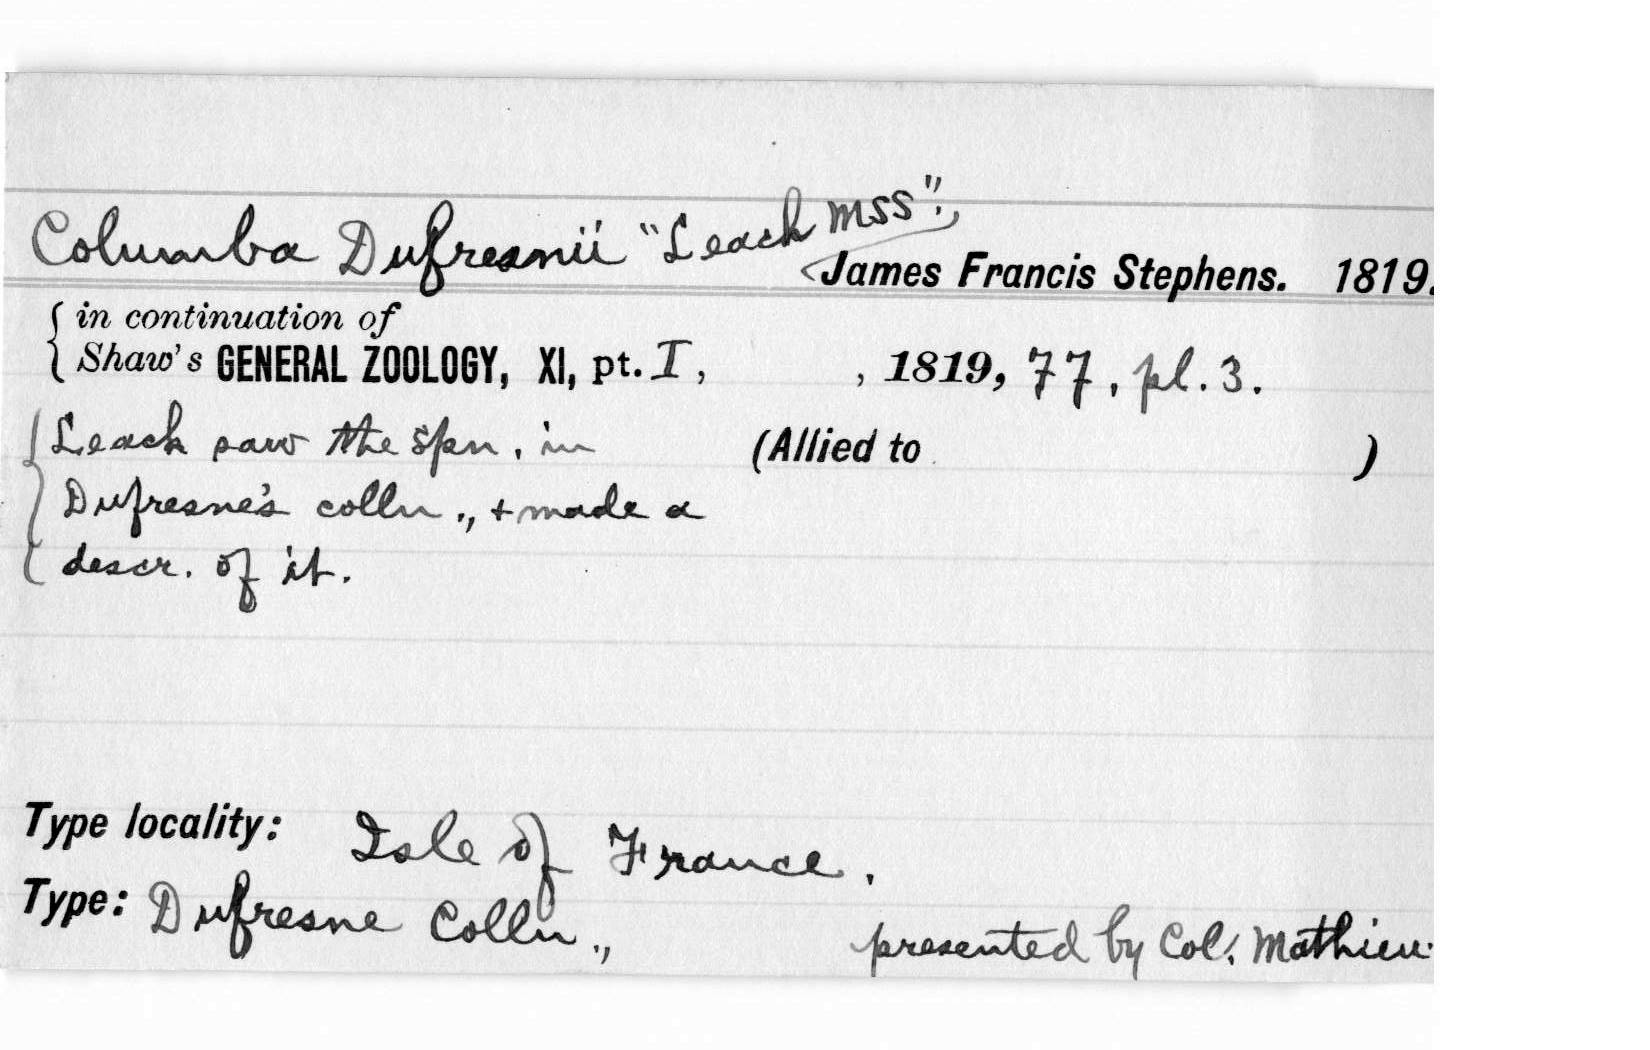 Columba Dufresnii "Leach mss".,
James Francis Stephens. 1819.
in continuation of
Shaw's GENERAL ZOOLOGY, XI, pt. I, , 1819, 77, pl. 3.
Leach saw the spn. in (Allied to )
Dufresne's colln., + made a
descr. of it.
Type locality: Isle of France.
Type: Dufresne Colln., presented by Col. Mathieu.